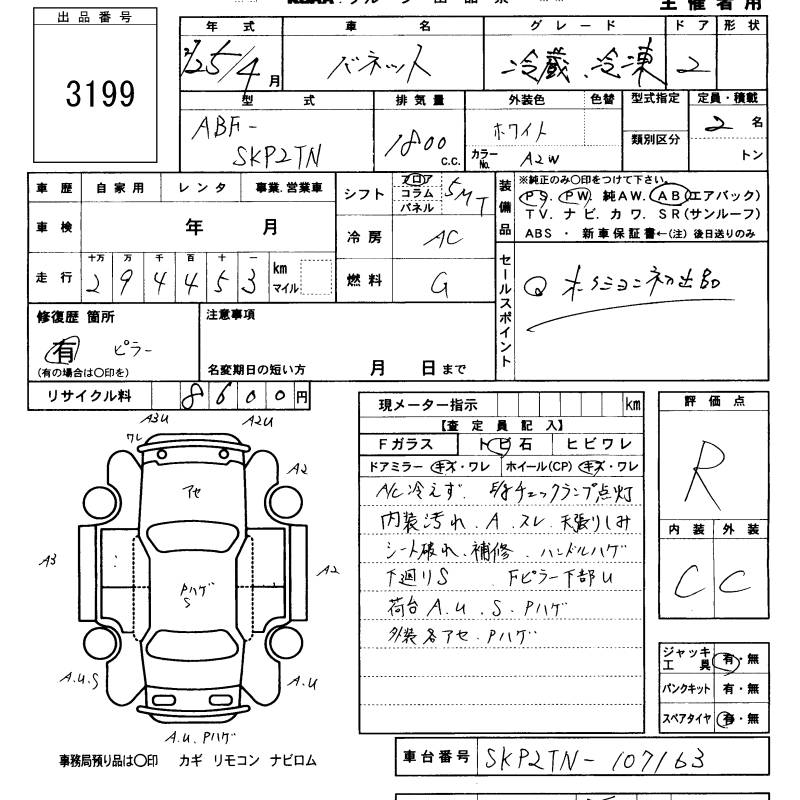 出品番号
3199
年式 車名 グレード ドア 形状
25/4月 バネット 冷蔵 冷凍 2
型式 排気量 外装色 色替 型式指定 定員・積載
ABF-
SKP2TN
1800 C.C.
ホワイト
カラーNo. A2W
類別区分
2名
トン
車歴 自家用 レンタ 事業.営業車
シフト フロア コラム パネル 5MT
装備品
※純正のみ〇印をつけて下さい。
PS. PW. 純AW. AB(エアバック)
TV. ナビ. カワ. SR(サンルーフ)
ABS ・ 新車保証書←(注) 後日送りのみ
車検 年 月
冷房 AC
走行 十万 万 千 百 十 一
294453 km マイル
燃料 G
セールスポイント
修復歴 箇所
有 ピラー
(有の場合は〇印を)
注意事項
名変期日の短い方 月 日まで
リサイクル料 8600円
現メーター指示 km
【査定員記入】
Fガラス トビ石 ヒビワレ
ドアミラー キズ・ワレ ホイール(CP) キズ・ワレ
A/C冷えず. チェックランプ点灯
内装汚れ. A. スレ. 天張りしみ
シート破れ. 補修. ハンドルハゲ
下廻りS Fピラー下部U
荷台 A.U.S.Pハゲ
外装各アセ.Pハゲ
評価点
R
内装 外装
C C
ジャッキ工具 有・無
パンクキット 有・無
スペアタイヤ 有・無
A3U
ワレ
A2U
A2
アセ
A3
Pハゲ
S
A2
A.U.S
A.U
A.U.Pハゲ
事務局預り品は〇印 カギ リモコン ナビロム
車台番号 SKP2TN-107163